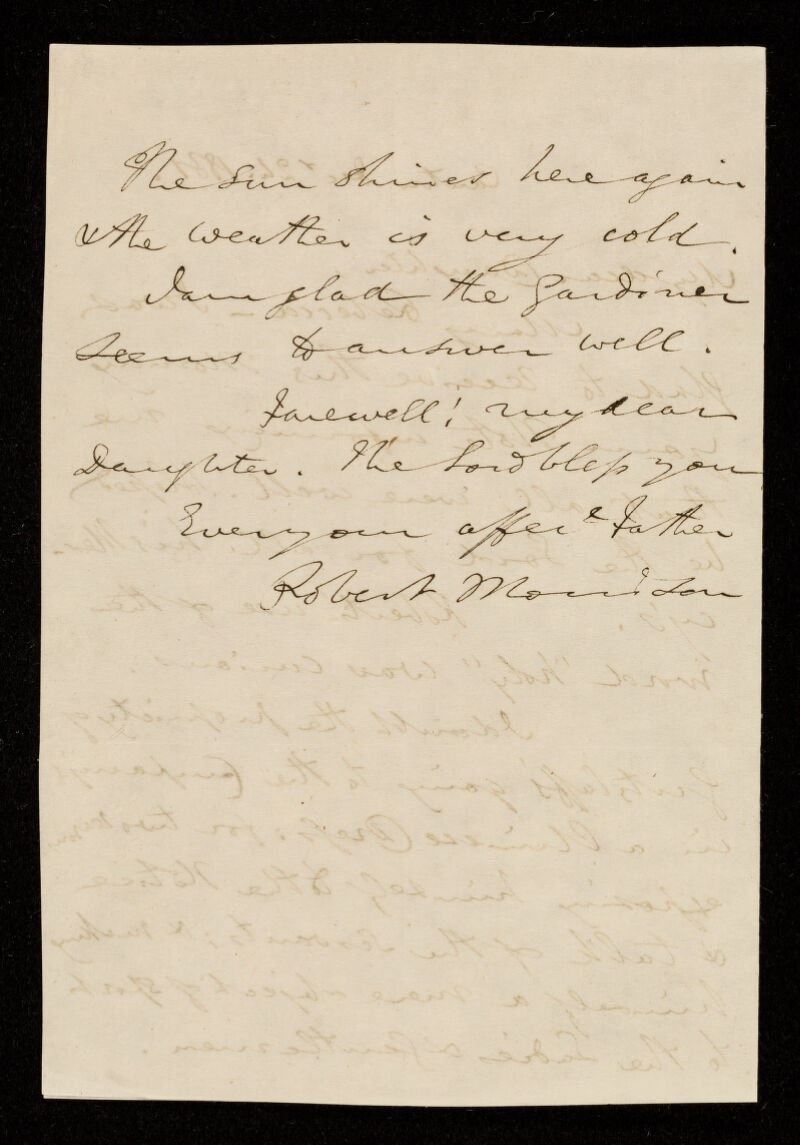 The sun shines here again
& the weather is very cold.
I am glad the Gardiner
seems to answer well.
Farewell! my dear
Daughter. The Lord bless you
Ever your affec.te Father
Robert Morrison